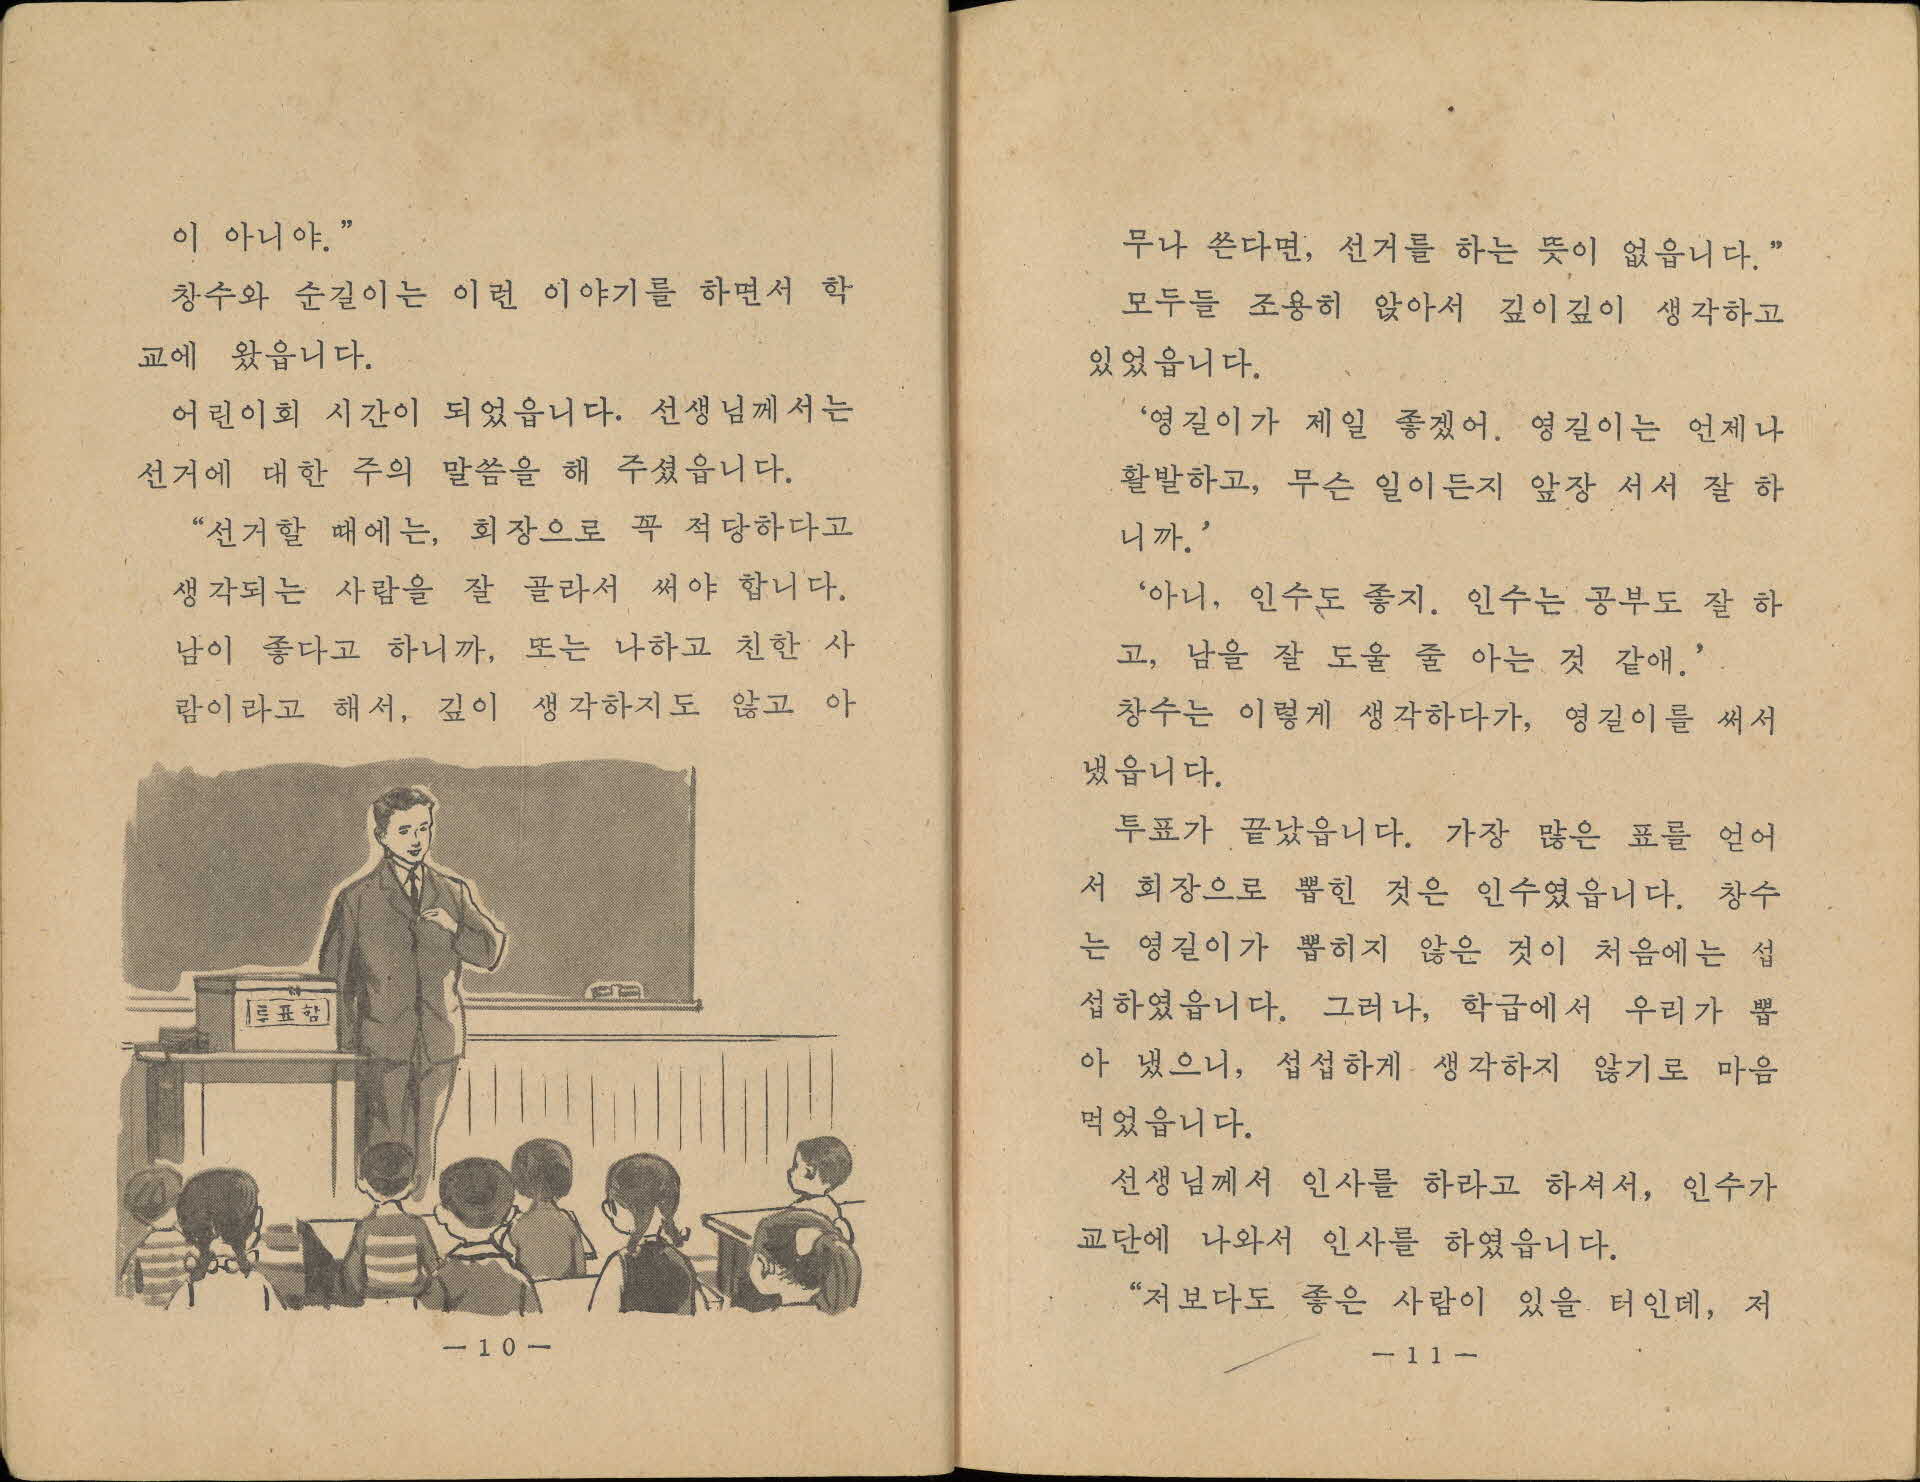 이 아니야.”
창수와 순길이는 이런 이야기를 하면서 학
교에 왔읍니다.
어린이회 시간이 되었읍니다. 선생님께서는
선거에 대한 주의 말씀을 해 주셨읍니다.
“선거할 때에는, 회장으로 꼭 적당하다고
생각되는 사람을 잘 골라서 써야 합니다.
남이 좋다고 하니까, 또는 나하고 친한 사
람이라고 해서, 깊이 생각하지도 않고 아
투표함
— 10 —
무나 쓴다면, 선거를 하는 뜻이 없읍니다.”
모두들 조용히 앉아서 깊이깊이 생각하고
있었읍니다.
‘영길이가 제일 좋겠어. 영길이는 언제나
활발하고, 무슨 일이든지 앞장 서서 잘 하
니까.’
‘아니, 인수도 좋지. 인수는 공부도 잘 하
고, 남을 잘 도울 줄 아는 것 같애.’
창수는 이렇게 생각하다가, 영길이를 써서
냈읍니다.
투표가 끝났읍니다. 가장 많은 표를 얻어
서 회장으로 뽑힌 것은 인수였읍니다. 창수
는 영길이가 뽑히지 않은 것이 처음에는 섭
섭하였읍니다. 그러나, 학급에서 우리가 뽑
아 냈으니, 섭섭하게 생각하지 않기로 마음
먹었읍니다.
선생님께서 인사를 하라고 하셔서, 인수가
교단에 나와서 인사를 하였읍니다.
“저보다도 좋은 사람이 있을 터인데, 저
— 11 —